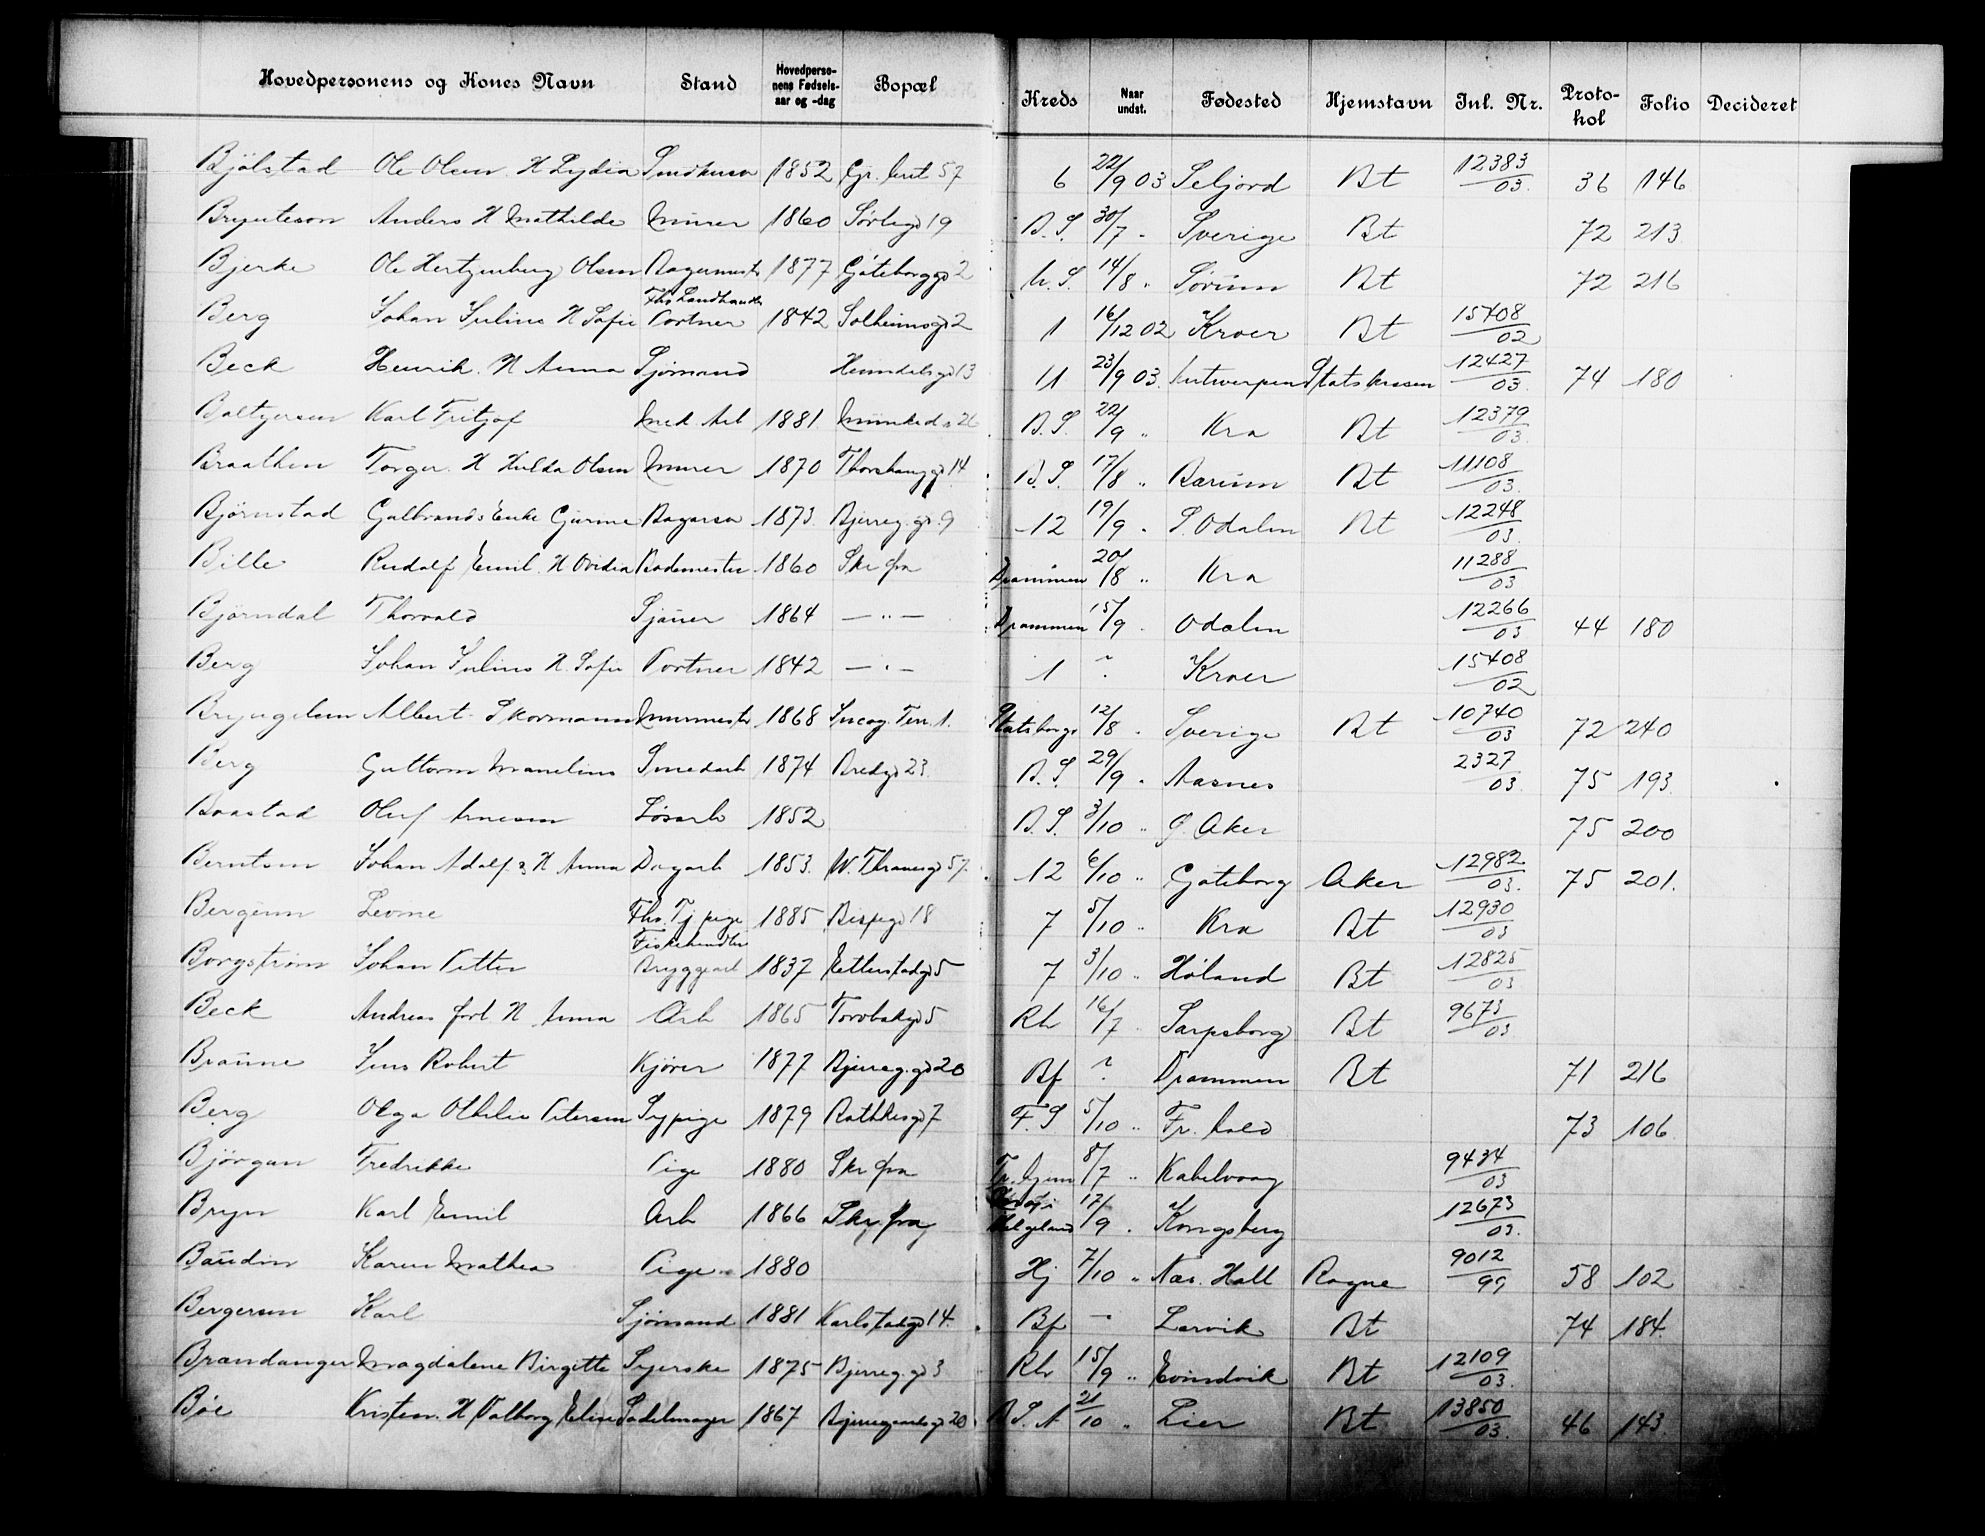 Hovedpersonens og Kones Navn Stand Hovedperso-nens Fødsels-aar og -dag Bopæl Kreds Naar undst. Fødested Hjemstavn Inl. Nr. Proto-kol Folio Decideret
Bjölstad Ole Olsen H Lydia 1852 57 6 22/9 03 Seljord Bt 12383/03. 36 146
Anders H Mathilde Murer 1860 19 B.S. 30/7 " Sverige Bt 72 213
Bjerke Ole Hertzenberg Olsen Bagermester 1877 Göteborggd 2 14/8 " Sörum Bt 72 216
Berg Johan Julius H Sofie Fhv Landhandler Portner 1842 Solheimsgd 2 1 16/12 02 Kroer Bt 15408/02
Beck Henrik. H Anna Sjömand Heimdalsgd 13 11 23/9 03. Antwerpen Statskassen 12427/03. 74 180
Karl Fritjof Mek. Arb 1881 26 B.S. 22/9 " Kra Bt 12379/03.
Braathen Torger. H Hulda Olsen Murer 1870 Thorshauggd 14 B.S. 17/8 " Bærum Bt 11108/03.
Björnstad Gulbrands Enke Gurine 1873. Bjerreg. gd. 9 12 19/9 " S. Odalen Bt 12248/03.
Bille Rudolf Emil. H Ovidia Bademester 1860 Skr fra Drammen 20/8 " Kra 11288/03
Björndal Thorvald Sjauer 1864 — " — Drammen 15/9 " Odalen 12266/03 44 180
Berg Johan Julius H. Sofie Portner 1842 — " — 1 Kroer 15408/02
Bryngelsen Albert Skormann Murmester 1868 1. 12/8 " Sverige Bt 10740/03 72 240
Berg Guttorm Manelius Smedarb 1874 Bredgd 23. B.S. 29/9 " Aasnes 2327/03. 75 193.
Braastad Oluf Arnesen Løsarb 1852 B.S. 3/10 " Aker 75 200
Berntsen Johan Adolf H Anna Dagarb 1853. W. Thranesgd 57. 12 6/10 " Göteborg Aker 12982/03. 75 201.
Leonie Fhv. Tj pige 1885 Bispegd 18 7 5/10 " Kra Bt 12930/03
Borgström Johan Petter Fiskehandler Bryggearb 1837 Etterstadgd 5 7 3/10 " Höland Bt 12825/03
Beck Andreas forl. H. Anna Arb 1865 Torvbakgd 5 Rh 16/7 " Sarpsborg Bt 9673/03
Braune Jens Robert Kjörer 1877 Bjerreg. gd 20 Bf Drammen Bt 71 216
Berg Olga Othilie Petersen Sypige 1879 Rathkesgd 7 F. S 5/10 " Fr. hald 73 106
Björgan Fredrikke Pige 1880 Skr fra Tr. hjem 8/7 " Kabelvaag 9434/03
Bryn Karl Emil Arb 1866 Skr. fra Helgeland 17/9 " Kongsberg 12673/03.
Baudin Karen Mathea Pige 1880 Hj 7/10 " Næs. Hall Ragne 9012/99 58 102
Bergersen Karl Sjömand 1881 Karlstadgd 14. Bf — Larvik Bt 74 184.
Brandanger Magdalene Birgitte Syerske 1875 Bjerreg. gd 3 Rh 15/9 " Evindvik Bt 12109/03.
Böe Kristian. H Valborg Elise Sadelmager 1867 Bjerregaardsgd 20 B S. A 21/10 " Lier Bt 13850/03. 46 143.